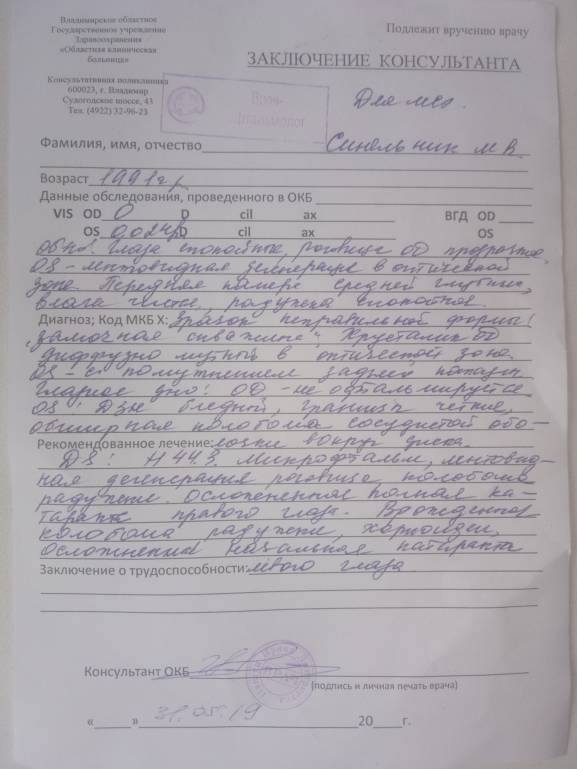 Владимирское областное
Государственное учреждение
Здравоохранения
«Областная клиническая
больница»
Консультативная поликлиника
600023, г. Владимир
Судогодское шоссе, 43
Тел. (4922) 32-96-23
Подлежит вручению врачу
ЗАКЛЮЧЕНИЕ КОНСУЛЬТАНТА
Врач-
Для мсэ.
Фамилия, имя, отчество Синельник М В.
Возраст 1991 г.р
Данные обследования, проведенного в ОКБ
VIS OD 0 D cil ax ВГД OD
OS D cil ax OS
Объек. глаза спокойные, роговица OD прозрачна,
OS - лентовидная дегенерация в оптической
зоне. Передняя камера средней глубины,
влага чистая, радужка
Диагноз; Код МКБ X: Зрачок неправильной формы!
"замочная скважина". Хрусталик OD
диффузно мутный в оптической зоне.
OS - с помутнением задней
Глазное дно: OD - не офтальмируется
OS: ДЗН бледный, границы четкие,
обширная колобома сосудистой обо-
Рекомендованное лечение: лочки вокруг диска.
DS: H 44.3. Микрофтальм, лентовид-
ная дегенерация роговицы, колобома
радужки. Осложненная полная ка-
таракта правого глаза. Врожденная
колобома радужки, хориоидеи,
Осложненная начальная катаракта
Заключение о трудоспособности: левого глаза
Консультант ОКБ
(подпись и личная печать врача)
« » 31.05.19 20 г.